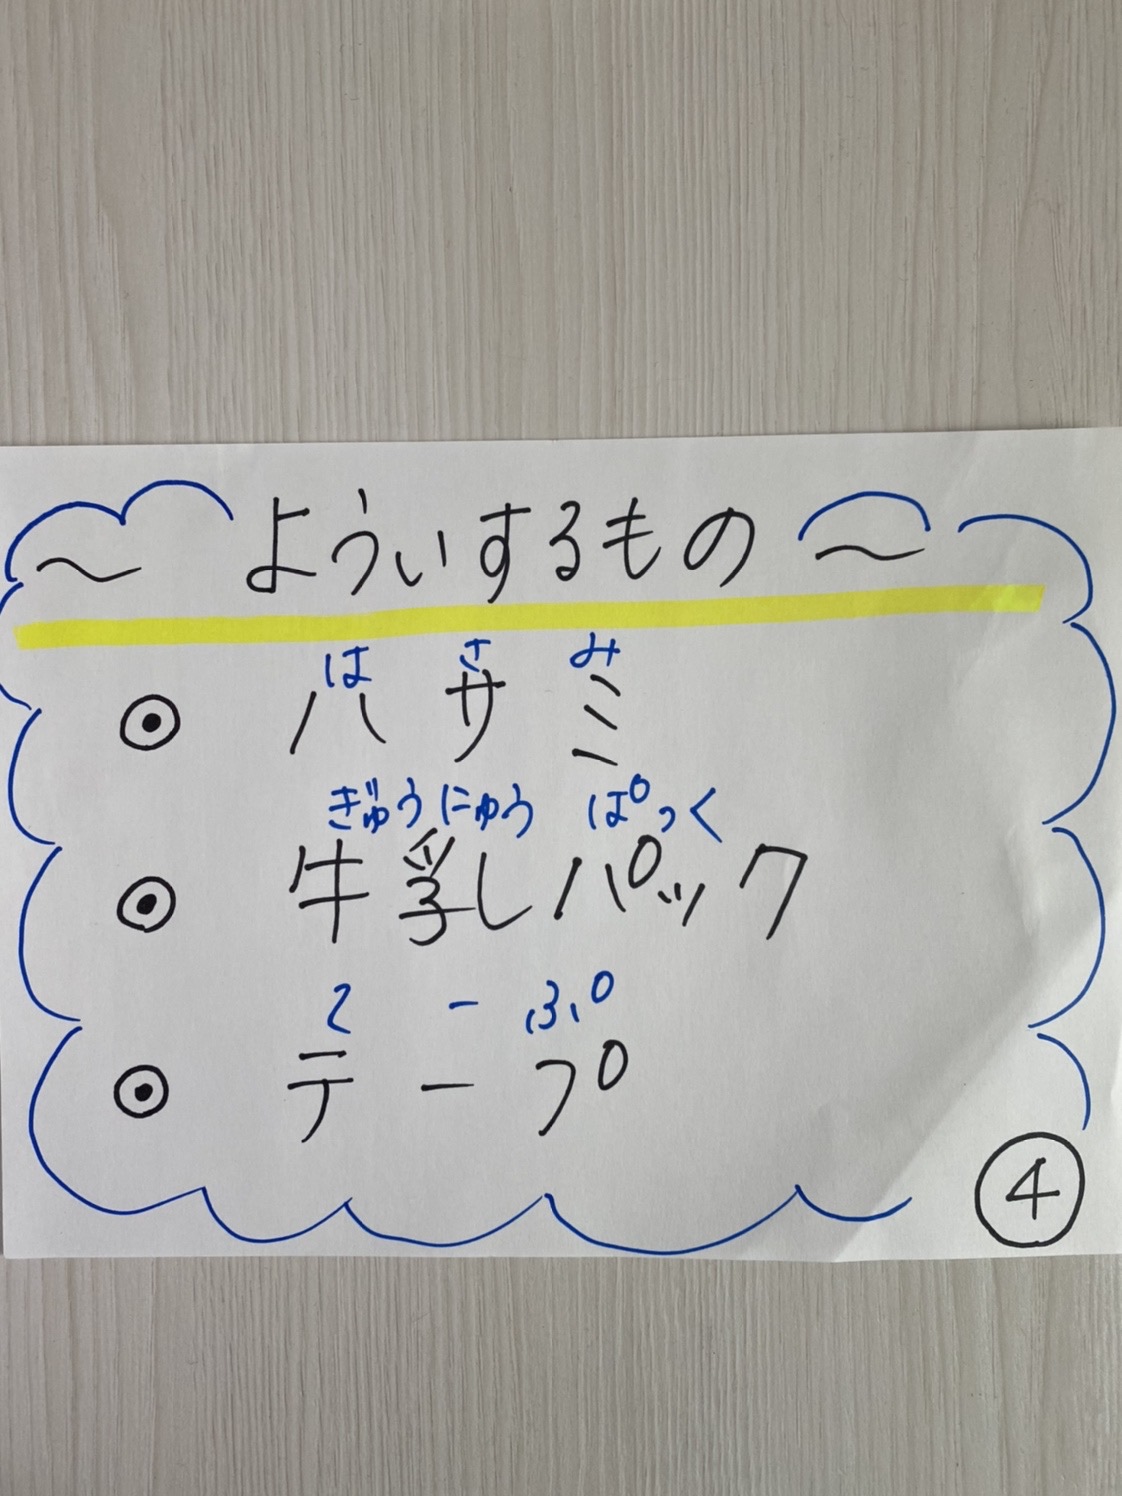 ～ よういするもの ～
は さ み
⦿ ハ サ ミ
ぎゅうにゅう ぱっく
⦿ 牛乳パック
て ー ぷ
⦿ テ ー プ
④